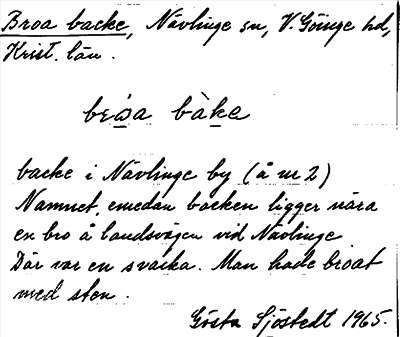 Broa backe, Nävlinge sn, V. Göinge hd,
Krist. län.
backe i Nävlinge by (å nr 2)
Namnet, emedan backen ligger nära
en bro å landsvägen vid Nävlinge
Där var en svacka. Man hade broat
med sten.
Gösta Sjöstedt 1965.